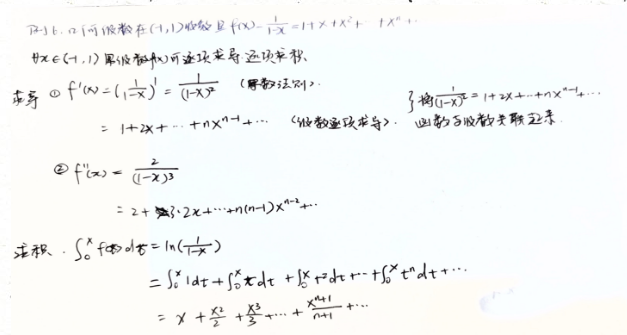 可知, 几何级数在(-1,1)收敛且 f(x)=1/(1-x)=1+x+x²+ +xⁿ+..
∀x∈(-1,1) 幂级数f(x)可逐项求导逐项求积.
求导 ① f'(x)=(1/(1-x))'=1/(1-x)² (导数法则).
=1+2x+…+nxⁿ⁻¹+… (级数逐项求导).
}将1/(1-x)²=1+2x+…+nxⁿ⁻¹+…
函数与级数关联起来.
② f''(x)=2/(1-x)³
=2+3·2x+…+n(n-1)xⁿ⁻²+…
求积. ∫₀ˣ f(t)dt=ln(1/(1-x))
=∫₀ˣ 1dt+∫₀ˣ t dt+∫₀ˣ t²dt+…+∫₀ˣ tⁿdt+…
=x+x²/2+x³/3+…+xⁿ⁺¹/(n+1)+…